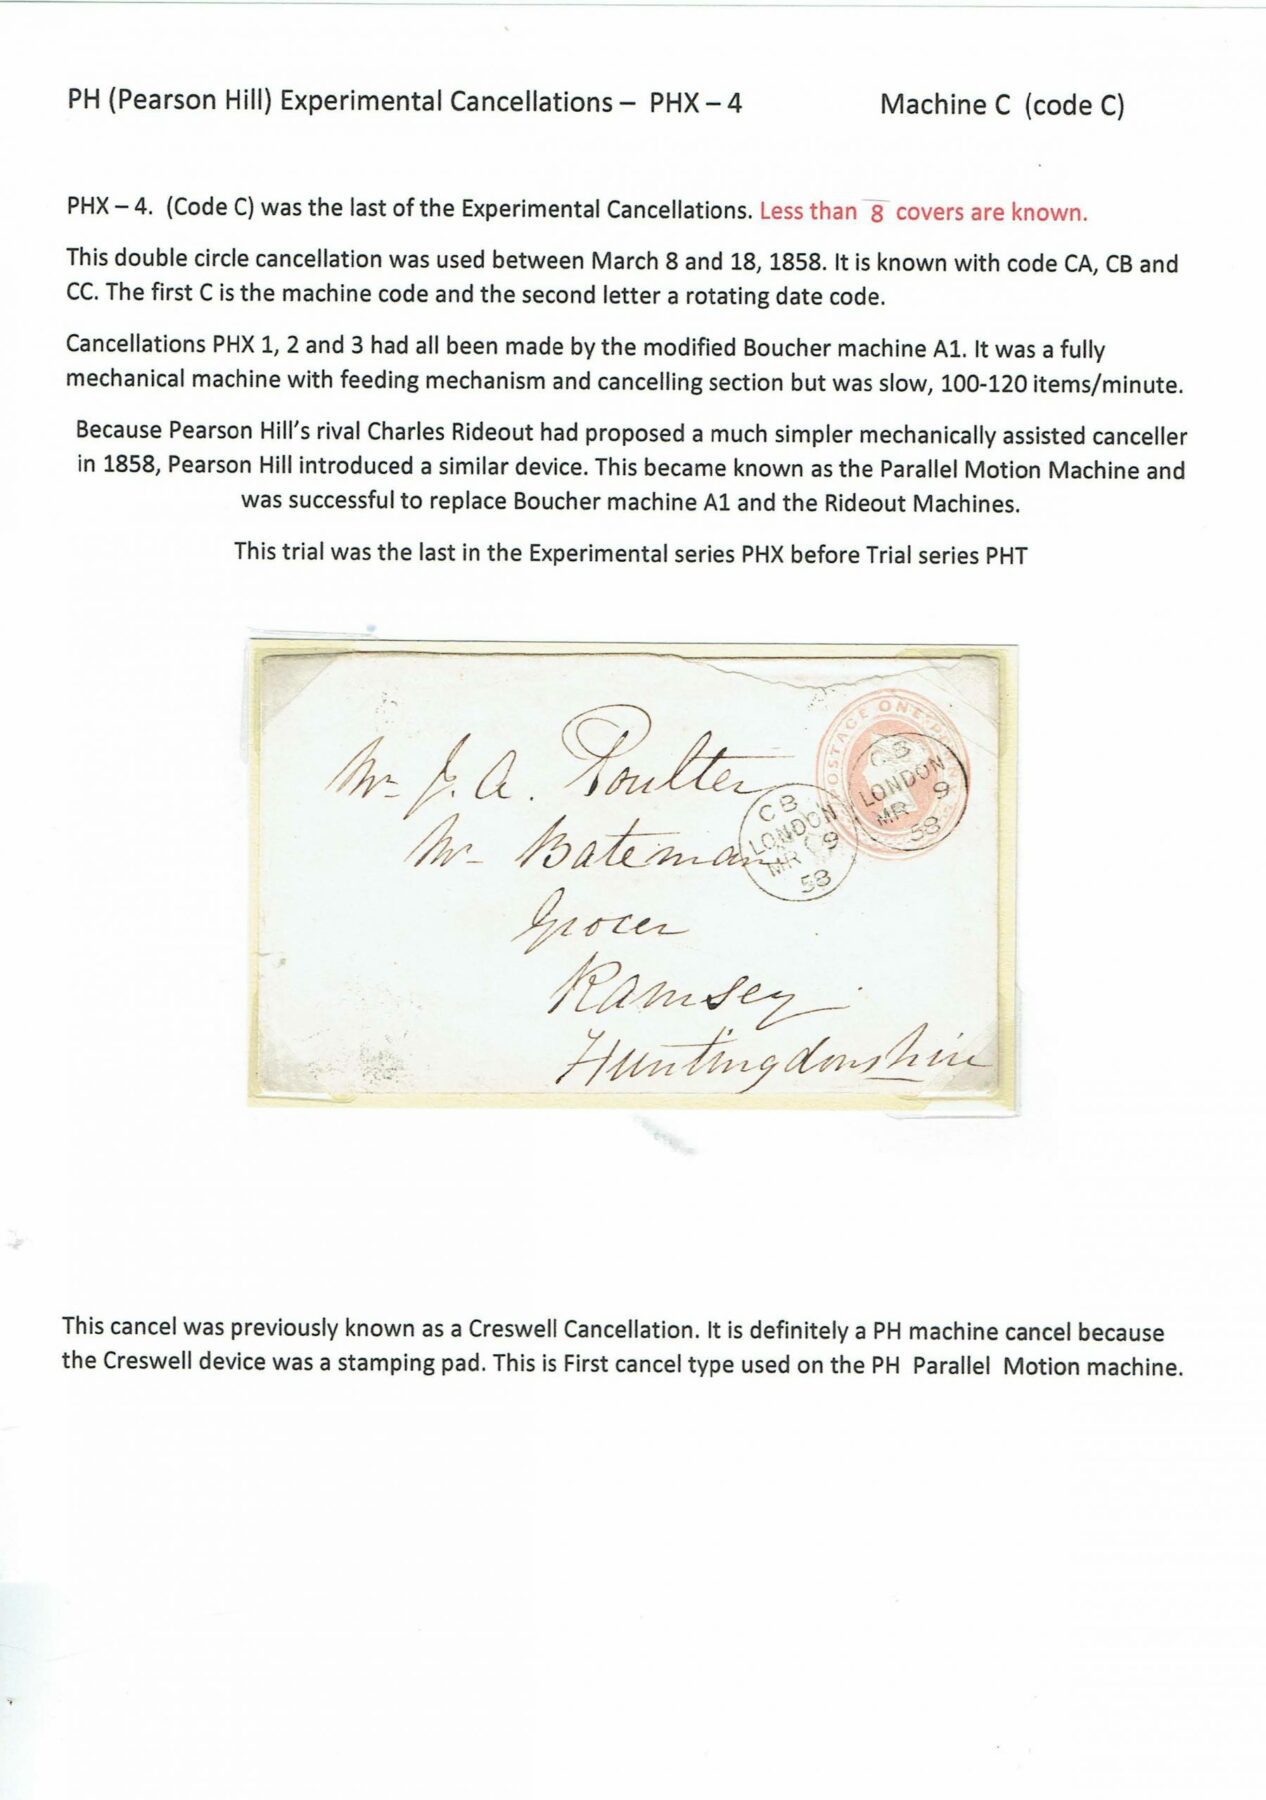 PH (Pearson Hill) Experimental Cancellations – PHX – 4 Machine C (code C)
PHX – 4. (Code C) was the last of the Experimental Cancellations. Less than 8 covers are known.
This double circle cancellation was used between March 8 and 18, 1858. It is known with code CA, CB and
CC. The first C is the machine code and the second letter a rotating date code.
Cancellations PHX 1, 2 and 3 had all been made by the modified Boucher machine A1. It was a fully
mechanical machine with feeding mechanism and cancelling section but was slow, 100-120 items/minute.
Because Pearson Hill's rival Charles Rideout had proposed a much simpler mechanically assisted canceller
in 1858, Pearson Hill introduced a similar device. This became known as the Parallel Motion Machine and
was successful to replace Boucher machine A1 and the Rideout Machines.
This trial was the last in the Experimental series PHX before Trial series PHT
POSTAGE ONE PENNY
CB
LONDON
MR 9
58
CB
LONDON
MR 9
58
Mr J. A. Poulter
Mr Bateman
Grocer
Ramsey
Huntingdonshire
This cancel was previously known as a Creswell Cancellation. It is definitely a PH machine cancel because
the Creswell device was a stamping pad. This is First cancel type used on the PH Parallel Motion machine.